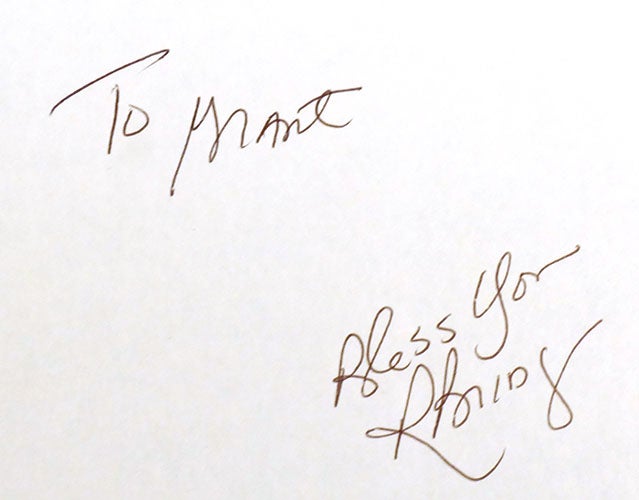 To Grant
Bless You